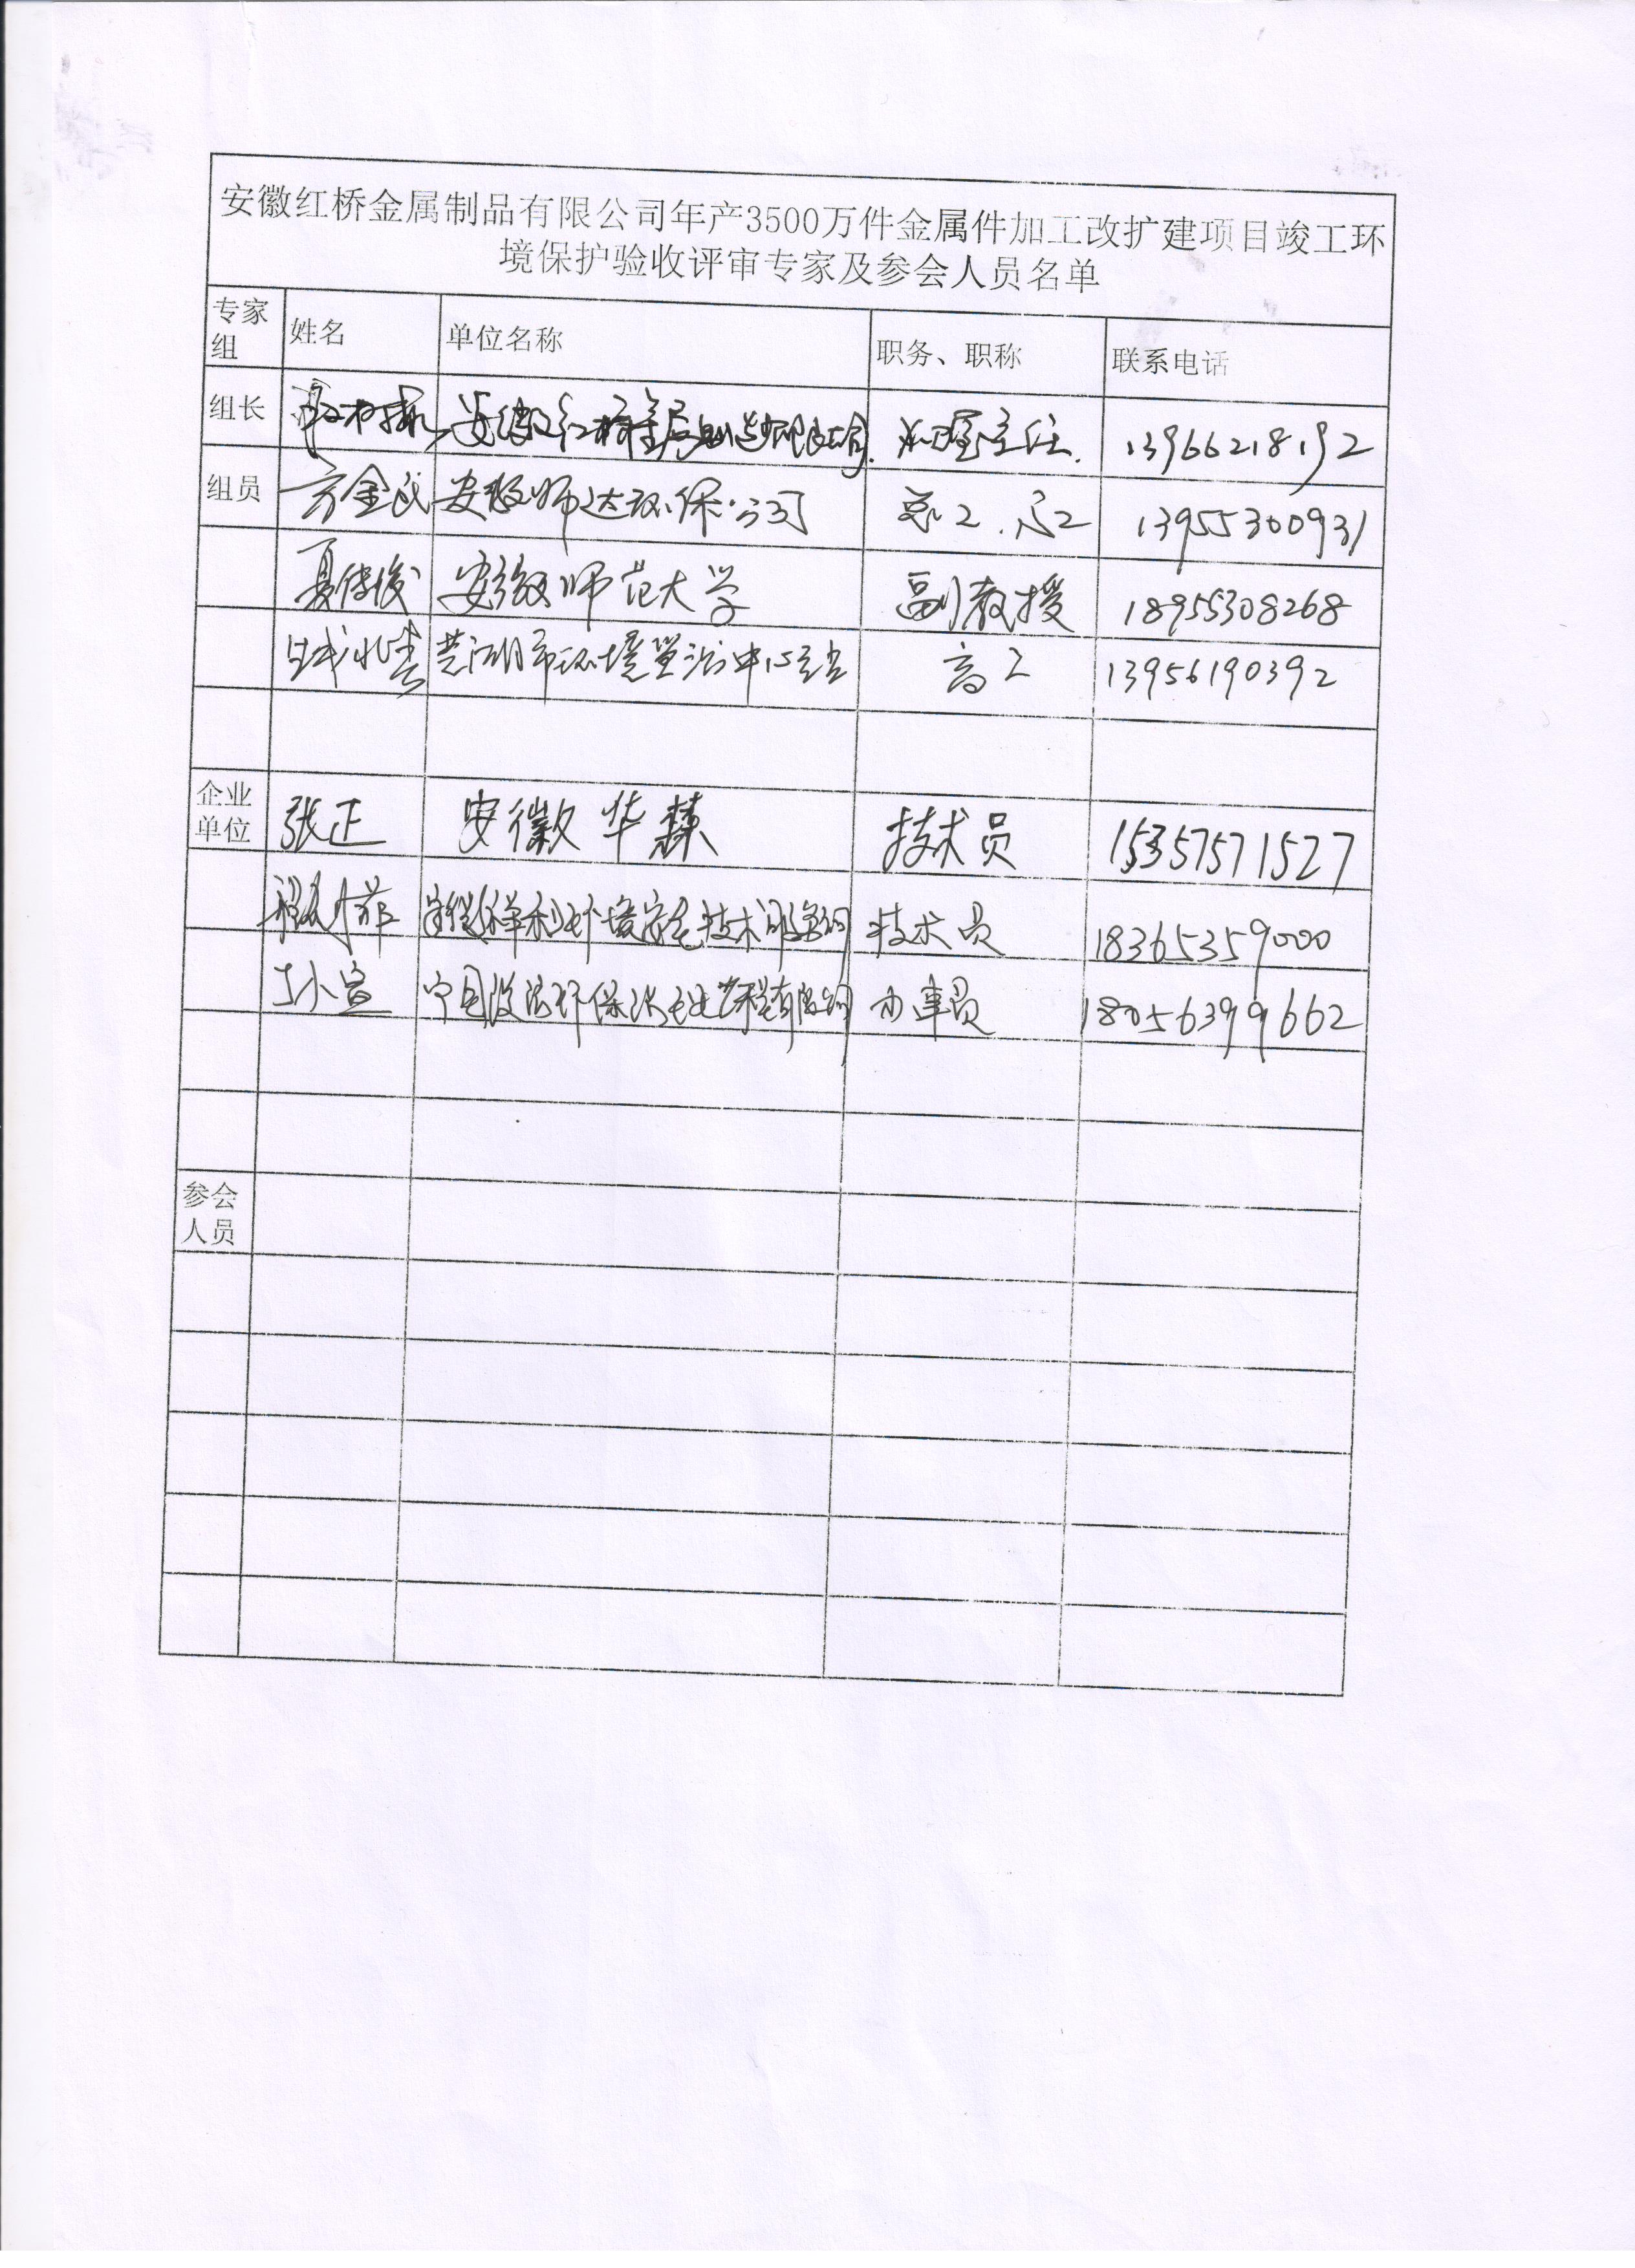 安徽红桥金属制品有限公司年产3500万件金属件加工改扩建项目竣工环
境保护验收评审专家及参会人员名单
专家组 姓名 单位名称 职务、职称 联系电话
组长 安徽红桥金属制造有限公司 办公室主任 13966218192
组员 方金武 安徽师达环保公司 总工 13955300931
夏伟俊 安徽师范大学 副教授 18955308268
芜湖市环境监测中心站 高工 13956190392
企业单位 张正 安徽华 技术员 15357571527
安徽祥利环境安全技术服务公司 技术员 18365359000
宁国 环保 有限公司 办事员 18056399662
参会人员